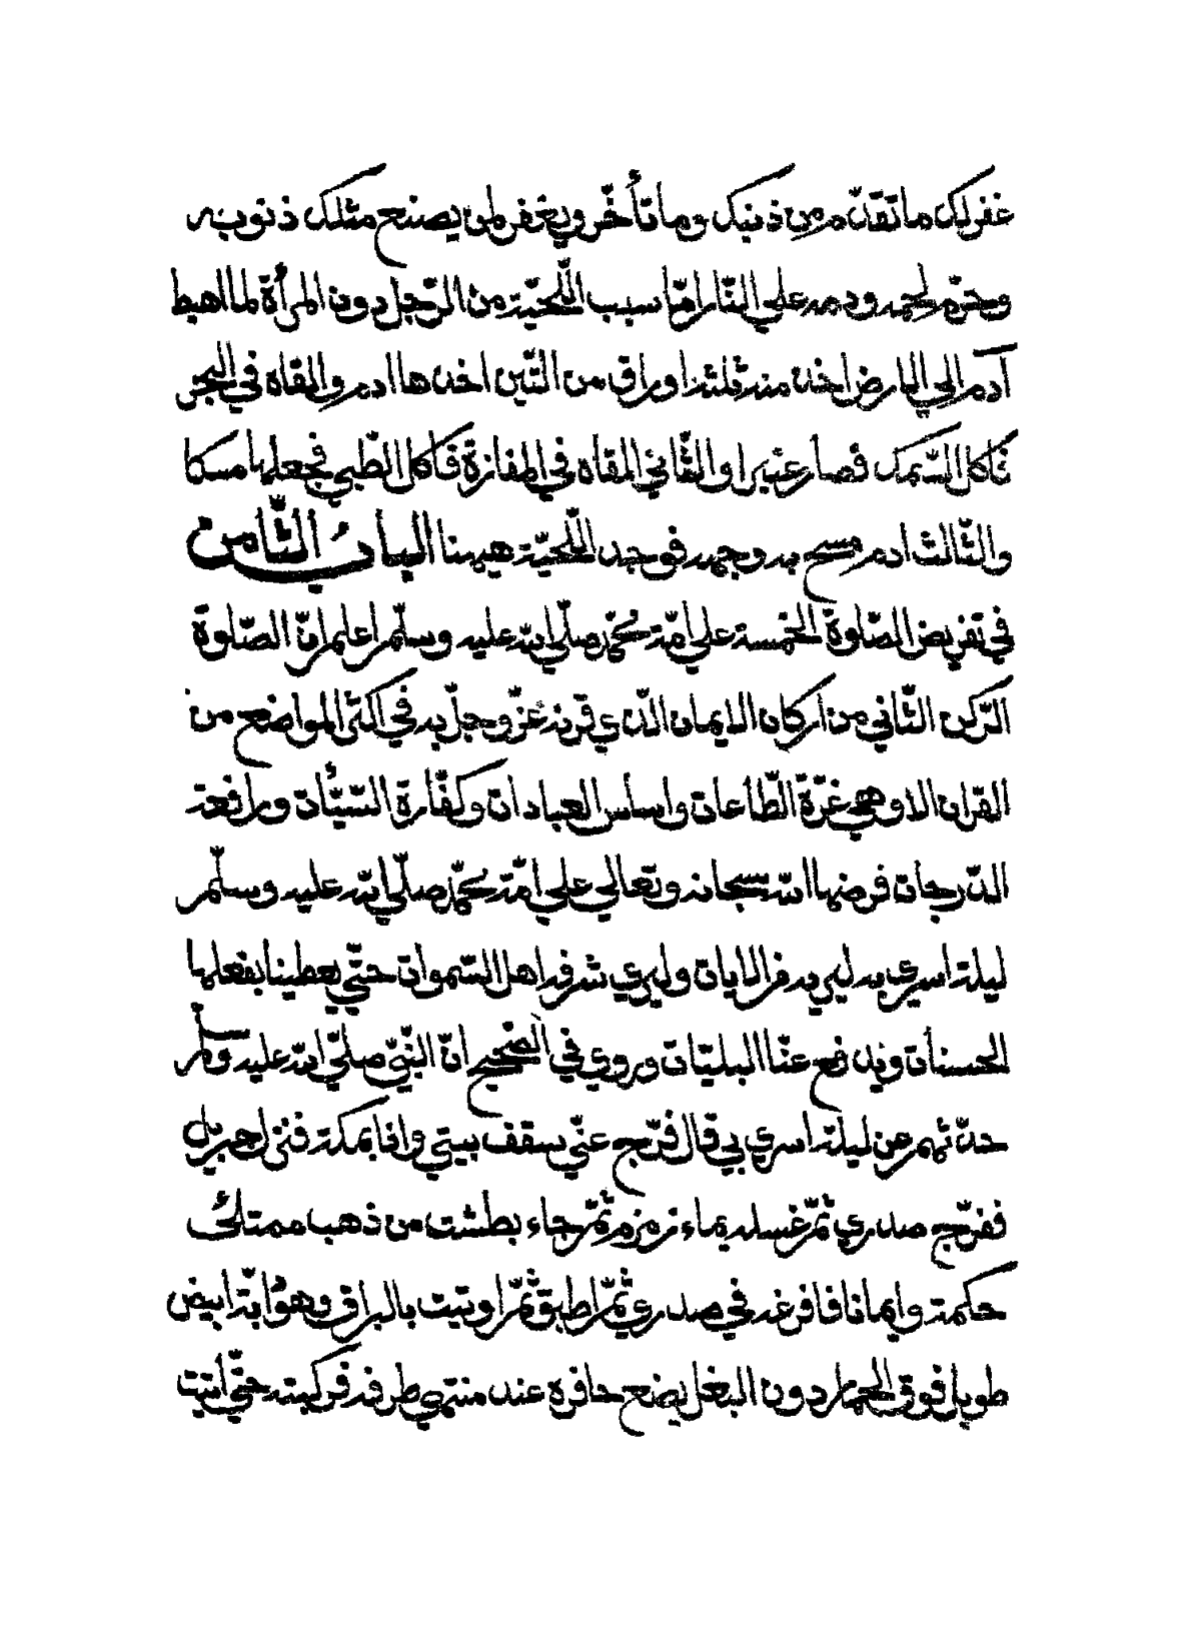 غفر لك ما تقدّم من ذنبك وما تأخّر ويغفر لمن يصنع مثلك ذنوبه
وحرّم لحمه ودمه علي النّار امّا سبب اللّحيّة من الرّجل دون المرأة لما اهبط
آدم الي الارض اخذ منه ثلثة اوراق من التّين اخذها ادم والقاه في البحر
فاكل السّمك فصار عنبرا والثّاني القاه في المفازة فاكل الظّبي فجعلها مسكا
والثّالث ادم مسح به وجهه فوجد اللّحيّة هيهنا البابُ الثّامن
في تفريض الصّلوة الخمسة علي امّة محمّد صلّي الله عليه وسلّم اعلم انّ الصّلوة
الرّكن الثّاني من اركان الايمان الّذي قرنه عزّ وجلّ به في اكثر المواضع من
القران الا وهي غرّة الطّاعات واساس العبادات وكفّارة السّيّأت ورافعة
الدّرجات فرضها الله سبحانه وتعالي علي امّة محمّد صلّي الله عليه وسلّم
ليلة اسري به ليريه من الايات وليري شرفه اهل السّموات حتّي يعطينا بفعلها
الحسنات ويدفع عنّا البليّات وروي في الصّحيح انّ النّبيّ صلّي الله عليه وسلّم
حدّثهم عن ليلة اسري بي قال فرّج عنّي سقف بيتي وانا بمكة فنزل جبريل
ففرّج صدري ثمّ غسله بماء زمزم ثمّ جاء بطشت من ذهب ممتلئ
حكمة وايمانا فافرغه في صدري ثمّ اطبق ثمّ اوتيت بالبراق وهو دابة ابيض
طويل فوق الحمار دون البغل يضع حافره عند منتهي طرفه فركبته حتّي أتيت